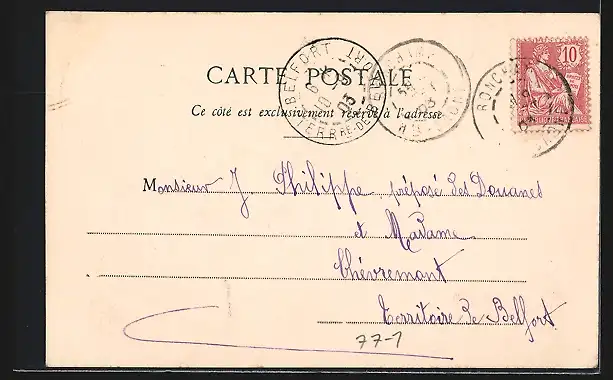 CARTE POSTALE
Ce côté est exclusivement réservé à l'adresse
BELFORT
TERRRE-DE-BELFORT
03
RONCH
10
Monsieur J. Philippe, préposé des Douanes
et Madame
Chévremont
Territoire de Belfort.
77-1